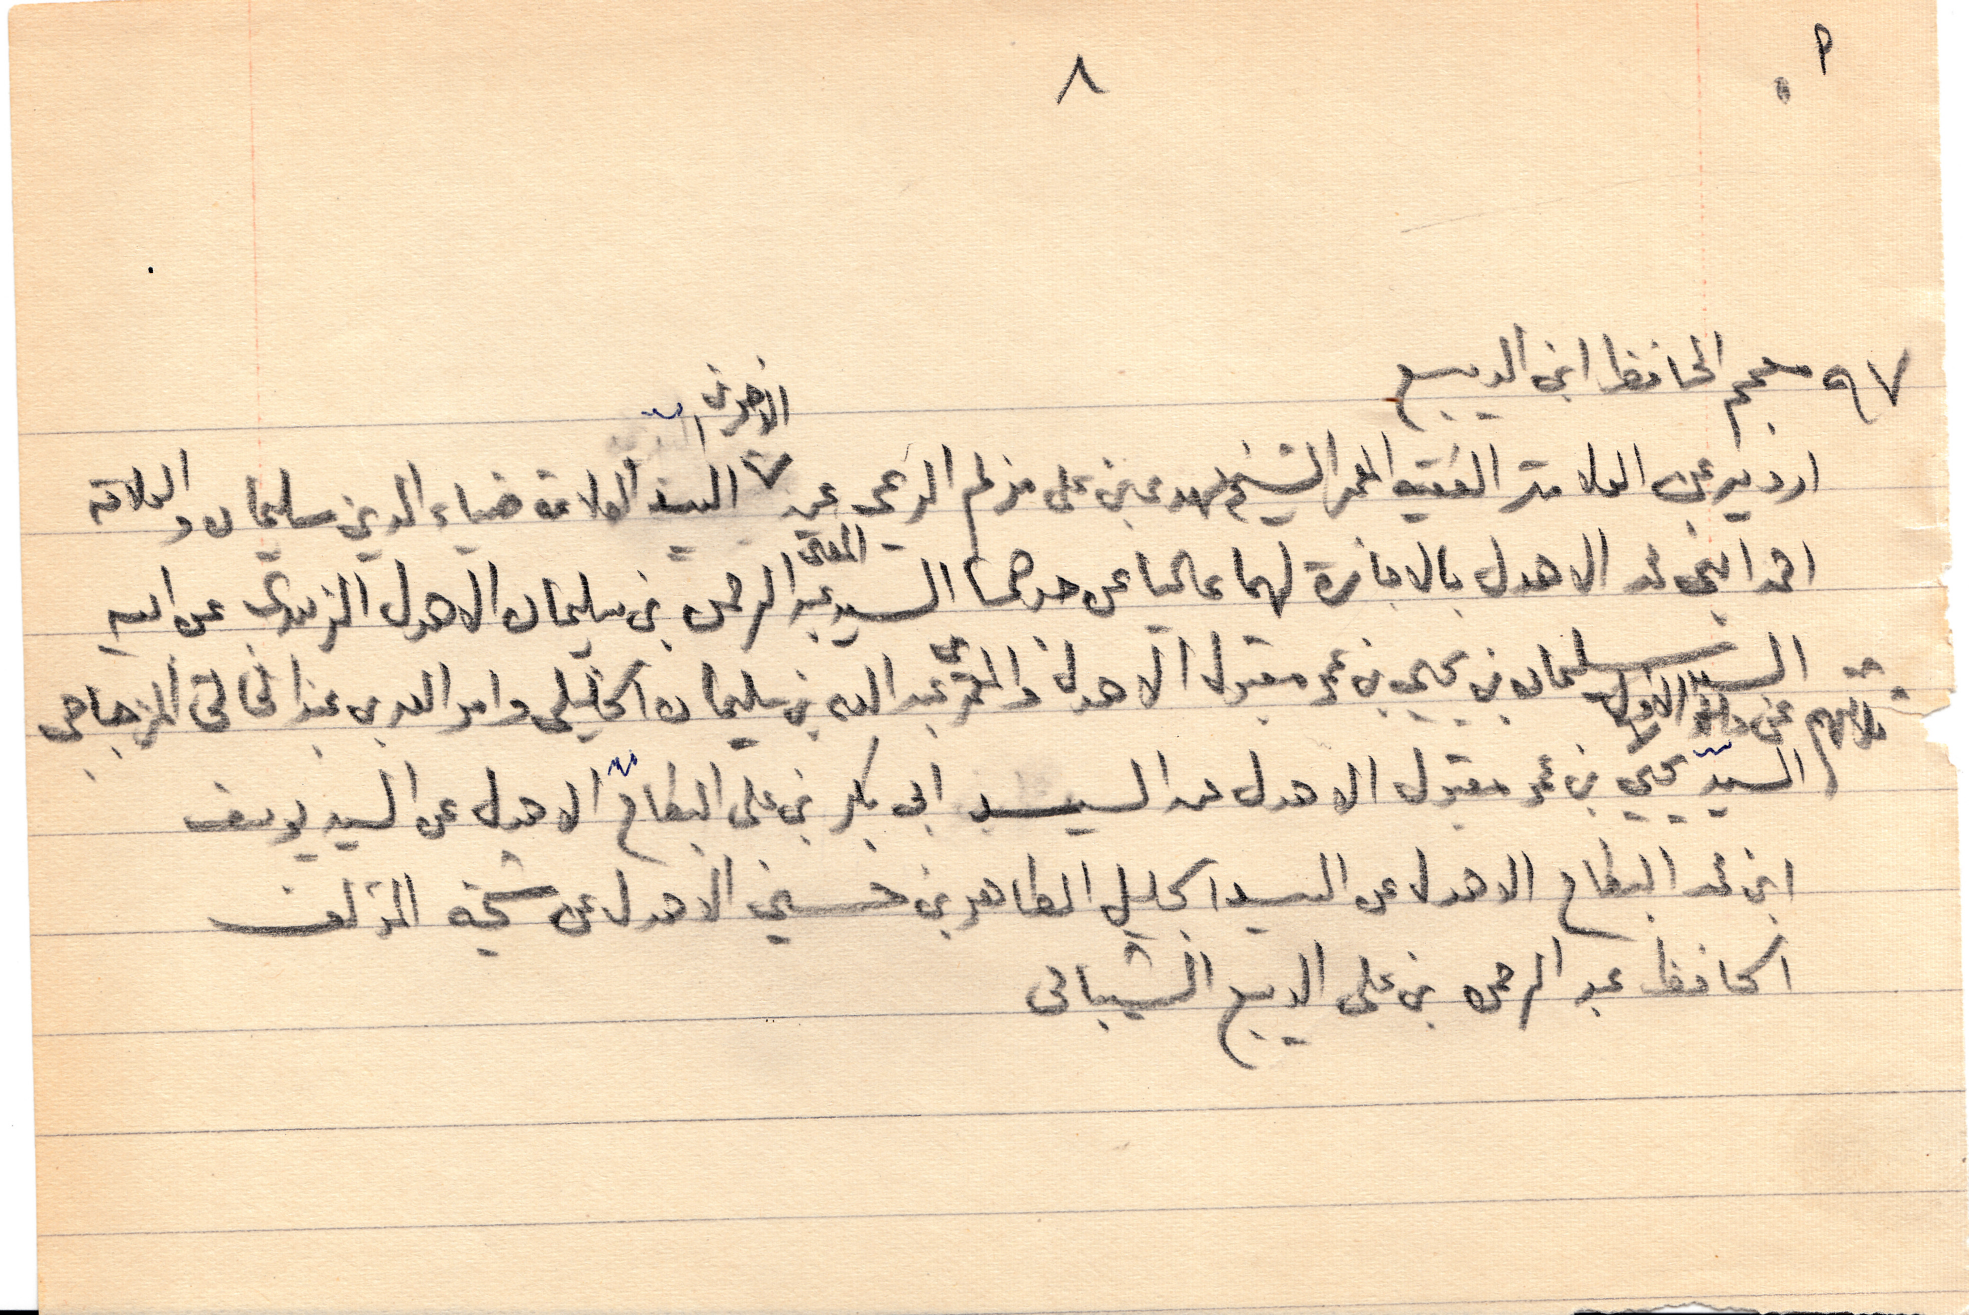 م
٨
٩٧ معجم الحافظ ابن الديبع
الاخوين
ارويه عن العلامة الفقيه المعمر الشيخ مهدي بن علي عن السيد العلامة ضياء الدين سليمان والعلامة
المفتي
احمد ابني محمد الاهدل بالاجازة لهما عاليا عن جدهما السيد عبد الرحمن بن سليمان الاهدل الزبيدي عن ابيه
السيد سليمان بن يحيى بن عمر مقبول الاهدل والمعمر عبد الله بن سليمان الخليلي وامر الله بن عبد الخالق المزجاجي
ثلاثتهم عن والد الاول
السيد يحيى بن عمر مقبول الاهدل عن السيد ابي بكر بن علي البطاح الاهدل عن السيد يوسف
ابن محمد البطاح الاهدل عن السيد الجليل الطاهر بن حسين الاهدل عن شيخه المؤلف
الحافظ عبد الرحمن بن علي الديبع الشيباني